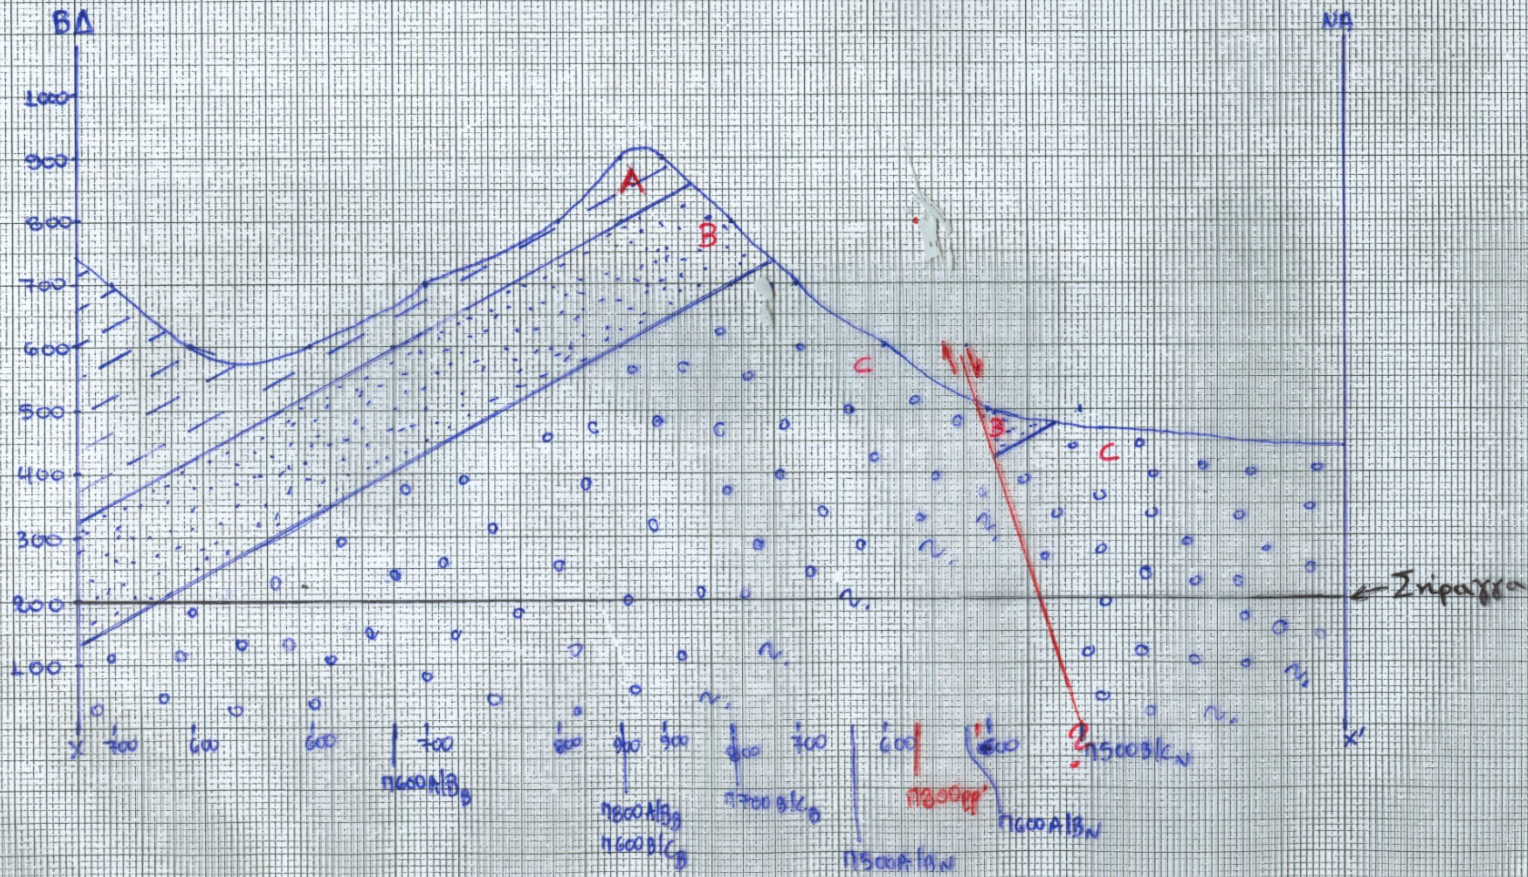 ΒΔ
ΝΑ
1000
900
800
700
600
500
400
300
200
100
A
B
C
B
C
← Σήραγγα
X
700
600
600
700
800
900
900
800
700
600
500
X'
Π600A/B_B
Π800A/B_B
Π600B/C_B
Π700B/C_B
Π500A/B_N
Π800ρρ'
Π600A/B_N
?
Π500B/C_N